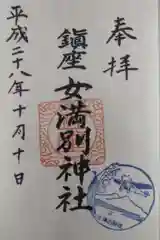 奉拝
鎮座
女満別神社
平成二十八年十月十日